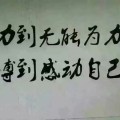 力到无能为力
搏到感动自己